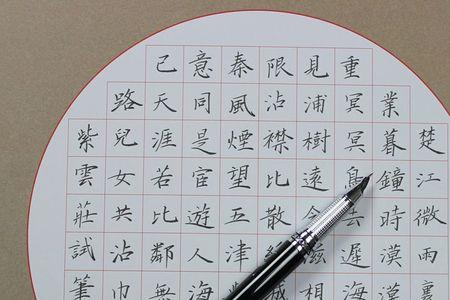 楚江微雨裏
業暮鐘時漠漠
重冥冥鳥去遲海
見浦樹遠含滋相
限沾襟比散絲城
秦風煙望五津
意同是宦遊人海
己天涯若比鄰無
路兒女共沾巾
紫雲莊試筆